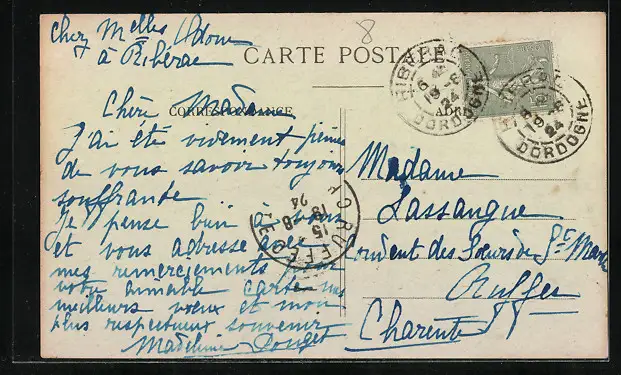 chez Melles Adonne
à Ribérac
8
CARTE POSTALE
CORRESPONDANCE
ADRE
Chère Madame
J'ai été vivement peinée
de vous savoir toujours
souffrante.
Je pense bien à vous
et vous adresse avec
mes remerciements pour
votre aimable carte mes
meilleurs vœux et mon
plus respectueux souvenir
Madeleine Pouget
Madame
Lassangue
Couvent des Sœurs de Ste Marthe
Ruffec
Charente
RIBERAC
19 -8
24
DORDOGNE
RIBERAC
19 -8
24
DORDOGNE
RUFFEC
15 -8
24